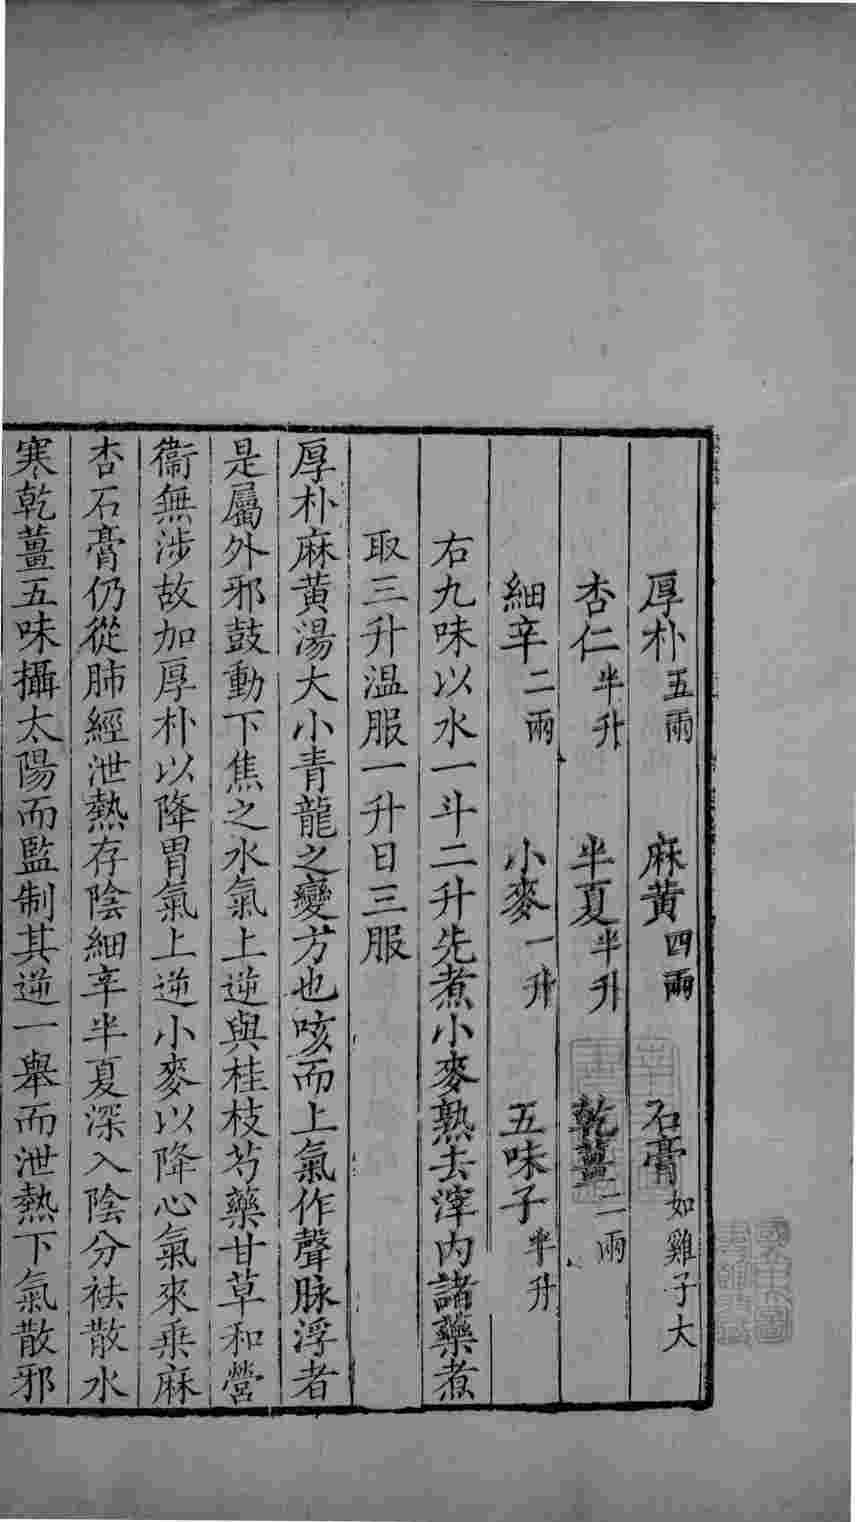 厚朴五兩 麻黄四兩 石膏如雞子大
杏仁半升 半夏半升 乾薑二兩
細辛二兩 小麥一升 五味子半升
右九味以水一斗二升先煮小麥熟去滓内諸藥煮
取三升温服一升日三服
厚朴麻黄湯大小青龍之變方也咳而上氣作聲脉浮者
是屬外邪鼓動下焦之水氣上逆與桂枝芍藥甘草和營
衞無涉故加厚朴以降胃氣上逆小麥以降心氣來乗麻
杏石膏仍從肺經泄熱存陰細辛半夏深入陰分袪散水
寒乾薑五味攝太陽而監制其逆一舉而泄熱下氣散邪